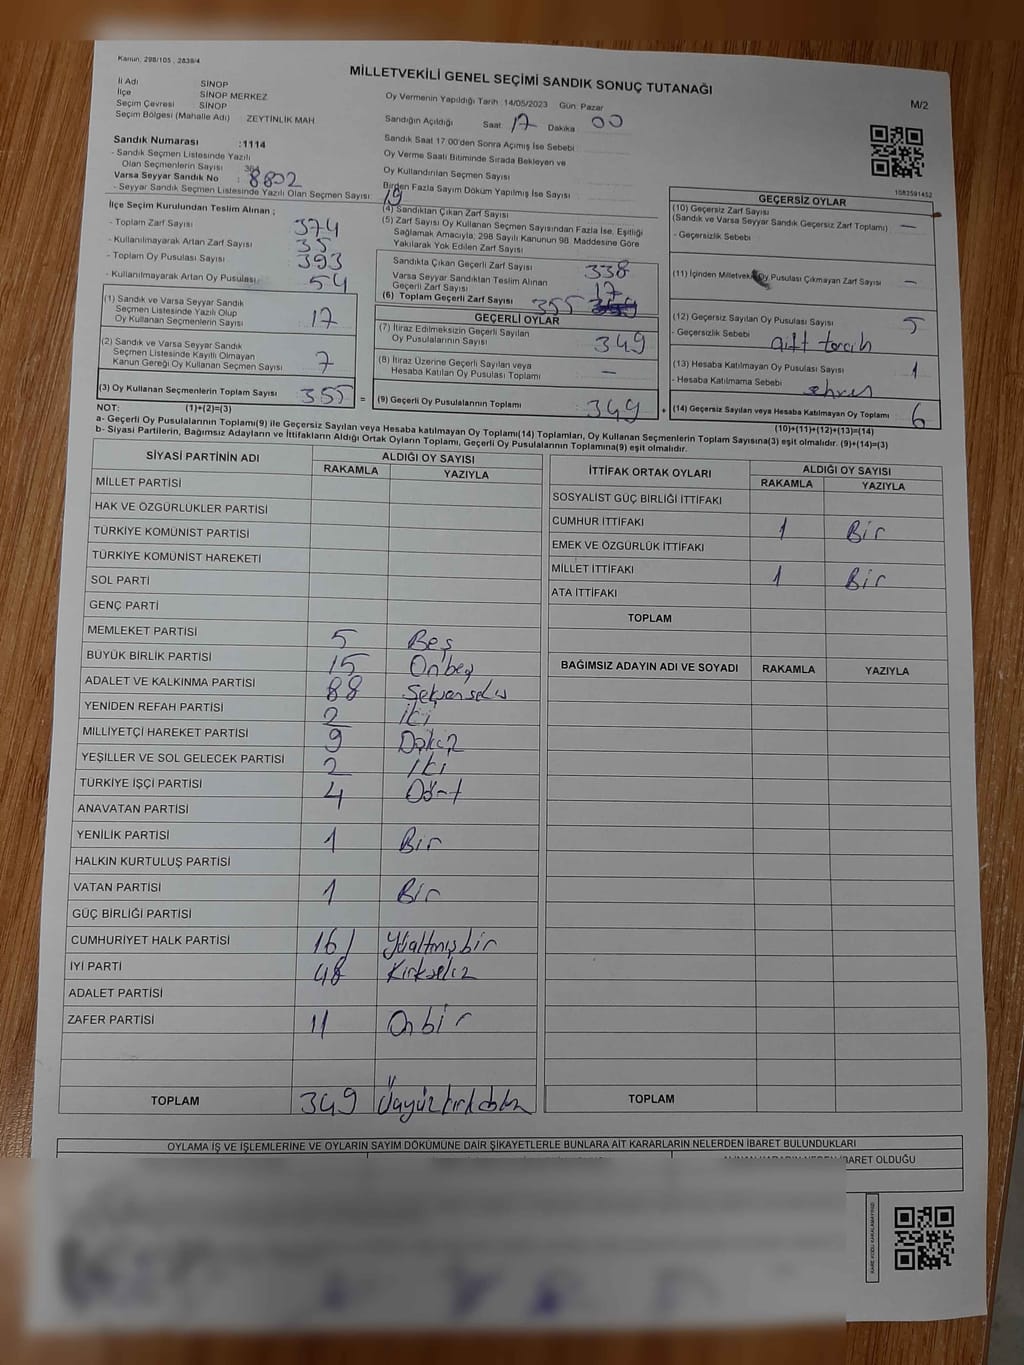 Kanun: 298/105 , 2839/4
MİLLETVEKİLİ GENEL SEÇİMİ SANDIK SONUÇ TUTANAĞI
M/2
İl Adı SİNOP
İlçe SİNOP MERKEZ
Seçim Çevresi SİNOP
Seçim Bölgesi (Mahalle Adı) ZEYTİNLİK MAH
Sandık Numarası :1114
- Sandık Seçmen Listesinde Yazılı
Olan Seçmenlerin Sayısı
Varsa Seyyar Sandık No : 8802
- Seyyar Sandık Seçmen Listesinde Yazılı Olan Seçmen Sayısı: 19
Oy Vermenin Yapıldığı Tarih :14/05/2023 Gün: Pazar
Sandığın Açıldığı Saat 17 Dakika 00
Sandık Saat 17.00'den Sonra Açımış İse Sebebi
Oy Verme Saati Bitiminde Sırada Bekleyen ve
Oy Kullandırılan Seçmen Sayısı
Birden Fazla Sayım Döküm Yapılmış İse Sayısı
1083591452
İlçe Seçim Kurulundan Teslim Alınan ;
- Toplam Zarf Sayısı 374
- Kullanılmayarak Artan Zarf Sayısı 35
- Toplam Oy Pusulası Sayısı 393
- Kullanılmayarak Artan Oy Pusulası 54
(1) Sandık ve Varsa Seyyar Sandık
Seçmen Listesinde Yazılı Olup
Oy Kullanan Seçmenlerin Sayısı 17
(2) Sandık ve Varsa Seyyar Sandık
Seçmen Listesinde Kayıtlı Olmayan
Kanun Gereği Oy Kullanan Seçmen Sayısı 7
(3) Oy Kullanan Seçmenlerin Toplam Sayısı 355 =
(4) Sandıktan Çıkan Zarf Sayısı
(5) Zarf Sayısı Oy Kullanan Seçmen Sayısından Fazla İse, Eşitliği
Sağlamak Amacıyla, 298 Sayılı Kanunun 98. Maddesine Göre
Yakılarak Yok Edilen Zarf Sayısı
Sandıkta Çıkan Geçerli Zarf Sayısı 338
Varsa Seyyar Sandıktan Teslim Alınan
Geçerli Zarf Sayısı 17
(6) Toplam Geçerli Zarf Sayısı 355
GEÇERLİ OYLAR
(7) İtiraz Edilmeksizin Geçerli Sayılan
Oy Pusulalarının Sayısı 349
(8) İtiraz Üzerine Geçerli Sayılan veya
Hesaba Katılan Oy Pusulası Toplamı —
(9) Geçerli Oy Pusulalarının Toplamı 349 +
GEÇERSİZ OYLAR
(10) Geçersiz Zarf Sayısı
(Sandık ve Varsa Seyyar Sandık Geçersiz Zarf Toplamı) —
- Geçersizlik Sebebi
(11) İçinden Milletvekili Oy Pusulası Çıkmayan Zarf Sayısı —
(12) Geçersiz Sayılan Oy Pusulası Sayısı 5
- Geçersizlik Sebebi çift tercih
(13) Hesaba Katılmayan Oy Pusulası Sayısı 1
- Hesaba Katılmama Sebebi
(14) Geçersiz Sayılan veya Hesaba Katılmayan Oy Toplamı 6
NOT: (1)+(2)=(3) (10)+(11)+(12)+(13)=(14)
a- Geçerli Oy Pusulalarının Toplamı(9) ile Geçersiz Sayılan veya Hesaba katılmayan Oy Toplamı(14) Toplamları, Oy Kullanan Seçmenlerin Toplam Sayısına(3) eşit olmalıdır. (9)+(14)=(3)
b- Siyasi Partilerin, Bağımsız Adayların ve İttifakların Aldığı Ortak Oyların Toplamı, Geçerli Oy Pusulalarının Toplamına(9) eşit olmalıdır.
SİYASİ PARTİNİN ADI ALDIĞI OY SAYISI
RAKAMLA YAZIYLA
MİLLET PARTİSİ
HAK VE ÖZGÜRLÜKLER PARTİSİ
TÜRKİYE KOMÜNİST PARTİSİ
TÜRKİYE KOMÜNİST HAREKETİ
SOL PARTİ
GENÇ PARTİ
MEMLEKET PARTİSİ 5 Beş
BÜYÜK BİRLİK PARTİSİ 15 Onbeş
ADALET VE KALKINMA PARTİSİ 88 Seksensekiz
YENİDEN REFAH PARTİSİ 2 iki
MİLLİYETÇİ HAREKET PARTİSİ 9 Dokuz
YEŞİLLER VE SOL GELECEK PARTİSİ 2 iki
TÜRKİYE İŞÇİ PARTİSİ 4 Dört
ANAVATAN PARTİSİ
YENİLİK PARTİSİ 1 Bir
HALKIN KURTULUŞ PARTİSİ
VATAN PARTİSİ 1 Bir
GÜÇ BİRLİĞİ PARTİSİ
CUMHURİYET HALK PARTİSİ 161 Yüzaltmışbir
İYİ PARTİ 48 Kırksekiz
ADALET PARTİSİ
ZAFER PARTİSİ 11 Onbir
TOPLAM 349 Üçyüzkırkdokuz
İTTİFAK ORTAK OYLARI ALDIĞI OY SAYISI
RAKAMLA YAZIYLA
SOSYALİST GÜÇ BİRLİĞİ İTTİFAKI
CUMHUR İTTİFAKI 1 Bir
EMEK VE ÖZGÜRLÜK İTTİFAKI
MİLLET İTTİFAKI 1 Bir
ATA İTTİFAKI
TOPLAM
BAĞIMSIZ ADAYIN ADI VE SOYADI RAKAMLA YAZIYLA
TOPLAM
OYLAMA İŞ VE İŞLEMLERİNE VE OYLARIN SAYIM DÖKÜMÜNE DAİR ŞİKAYETLERLE BUNLARA AİT KARARLARIN NELERDEN İBARET BULUNDUKLARI
ALINAN KARARIN NEDEN İBARET OLDUĞU
KARE KODU KARALAMAYINIZ!